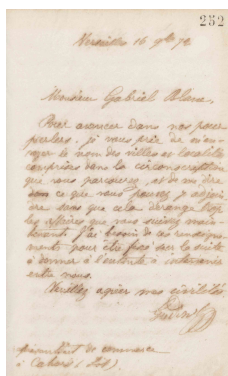 252
Versailles 16 9bre 72
Monsieur Gabriel
Pour avancer dans nos pour
parlers, je vous prie de m'en
voyer le nom des villes et localités
comprises dans la circonscription
que vous parcourez, et de me dire
son ce que vous pouvez y adjoin
dre sans que cela dérange
les affaires que vous suivez main
tenant. J'ai besoin de ces renseigne
ments pour être fixé sur la suite
à donner à l'entente à intervenir
entre nous.
Veuillez agréer mes civilités.
de commerce
à Cahors (Lot).